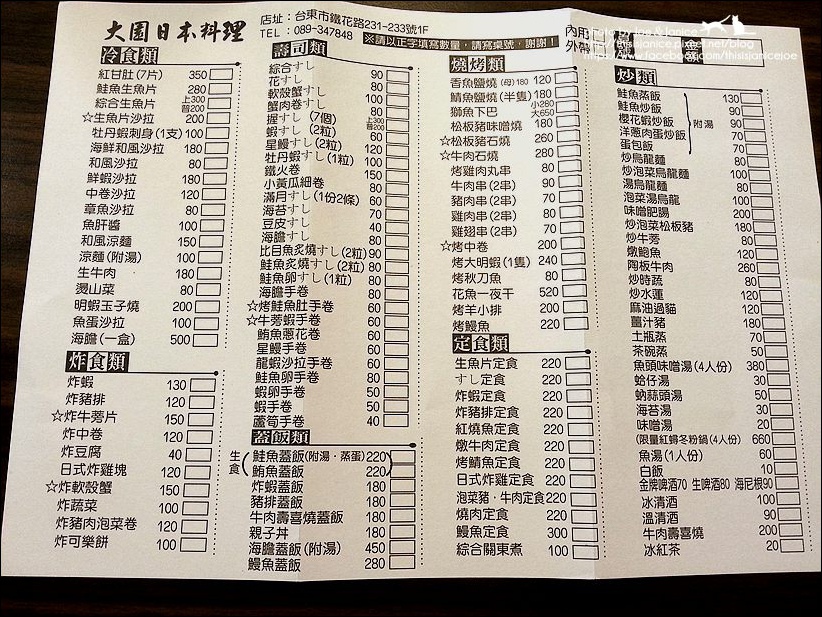 大園日本料理
店址：台東市鐵花路231-233號1F
TEL：089-347848
※請以正字填寫數量，請寫桌號，謝謝！
內用
外帶
冷食類
紅甘肚(7片) 350
鮭魚生魚片 280
綜合生魚片 上300 普200
☆生魚片沙拉 200
牡丹蝦刺身(1支) 100
海鮮和風沙拉 180
和風沙拉 80
鮮蝦沙拉 180
中卷沙拉 120
章魚沙拉 80
魚肝醬 100
和風涼麵 150
涼麵(附湯) 100
生牛肉 180
燙山菜 80
明蝦玉子燒 200
魚蛋沙拉 100
海膽(一盒) 500
炸食類
炸蝦 130
炸豬排 120
☆炸牛蒡片 150
炸中卷 120
炸豆腐 40
日式炸雞塊 120
☆炸軟殼蟹 150
炸蔬菜 100
炸豬肉泡菜卷 120
炸可樂餅 100
壽司類
綜合すし 90
花すし 80
軟殼蟹すし 100
蟹肉卷すし 80
握すし(7個) 上300 普200
蝦すし(2粒) 60
星鰻すし(2粒) 120
牡丹蝦すし(1粒) 100
鐵火卷 150
小黃瓜細卷 80
滿月すし(1份2條) 60
海苔すし 70
豆皮すし 40
海膽すし 80
比目魚炙燒すし(2粒) 90
鮭魚炙燒すし(2粒) 80
鮭魚卵すし(1粒) 80
海膽手卷 80
☆烤鮭魚肚手卷 60
☆牛蒡蝦手卷 60
鮪魚蔥花卷 60
星鰻手卷 60
龍蝦沙拉手卷 60
鮭魚卵手卷 80
蝦卵手卷 50
蝦手卷 50
蘆筍手卷 40
蓋飯類
生食
鮭魚蓋飯(附湯·蒸蛋) 220
鮪魚蓋飯 220
炸蝦蓋飯 180
豬排蓋飯 180
牛肉壽喜燒蓋飯 180
親子丼 180
海膽蓋飯(附湯) 450
鰻魚蓋飯 280
燒烤類
香魚鹽燒(母)180 120
鯖魚鹽燒(半隻) 180
獅魚下巴 小280 大650
松板豬味噌燒 180
☆松板豬石燒 260
☆牛肉石燒 280
烤雞肉丸串 80
牛肉串(2串) 90
豬肉串(2串) 70
雞肉串(2串) 80
雞翅串(2串) 70
☆烤中卷 200
烤大明蝦(1隻) 240
烤秋刀魚 80
花魚一夜干 520
烤羊小排 200
烤鰻魚 220
定食類
生魚片定食 220
すし定食 220
炸蝦定食 220
炸豬排定食 220
紅燒魚定食 220
燉牛肉定食 220
烤鯖魚定食 220
日式炸雞定食 220
泡菜豬·牛肉定食 220
燒肉定食 220
鰻魚定食 300
綜合關東煮 100
炒類
鮭魚蒸飯 130
鮭魚炒飯 90
櫻花蝦炒飯 90
洋蔥肉蛋炒飯 70
附湯
蛋包飯 90
炒烏龍麵 80
炒泡菜烏龍麵 100
湯烏龍麵 80
泡菜湯烏龍 100
味噌肥腸 200
炒泡菜松板豬 180
炒牛蒡 80
燉鮑魚 120
陶板牛肉 260
炒時蔬 80
炒水蓮 120
麻油過貓 120
薑汁豬 180
土瓶蒸 70
茶碗蒸 50
魚頭味噌湯(4人份) 380
蛤仔湯 30
蚋蒜頭湯 50
海苔湯 30
味噌湯 20
(限量紅蟳冬粉鍋(4人份) 660
魚湯(1人份) 60
白飯 10
金牌啤酒70 生啤酒80 海尼根90
冰清酒 100
溫清酒 90
牛肉壽喜燒 200
冰紅茶 20